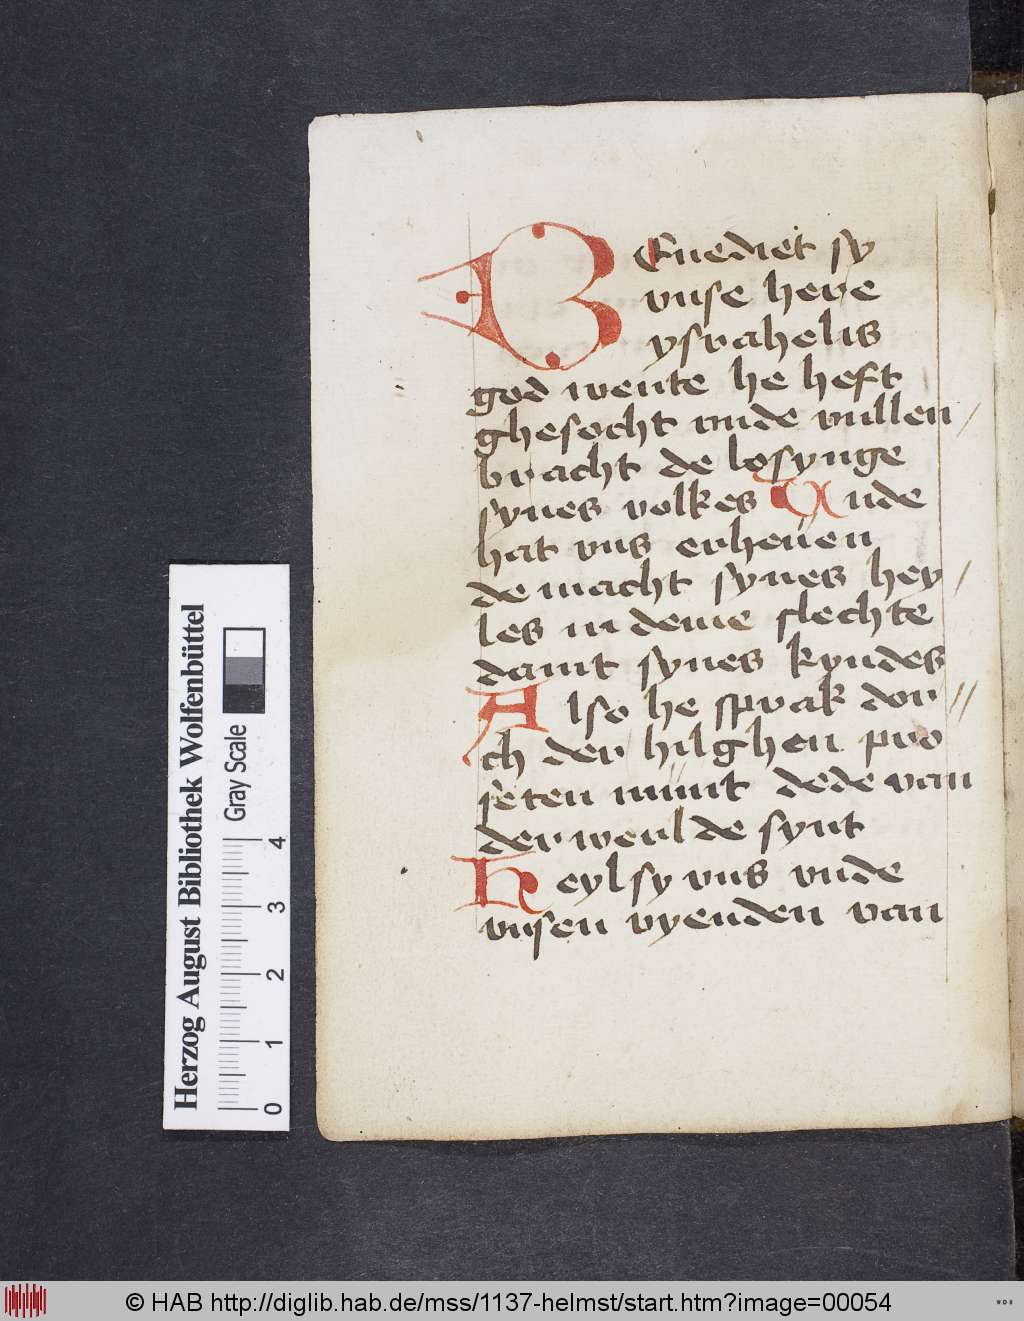 BEnediet sy
vnse here
ysrahelis
god wente he heft
ghesocht vnde vullen/
bracht de losynge
synes volkes Vnde
hat vns erheuen
de macht synes hey/
les in deme slechte
dauit synes kyndes
Also he sprak dor//
ch der hilghen pro
feten munt dede van
der werlde synt
Heyl sy vns vnde
vnsen vyenden van
Herzog August Bibliothek Wolfenbüttel
Gray Scale
0 1 2 3 4
© HAB http://diglib.hab.de/mss/1137-helmst/start.htm?image=00054